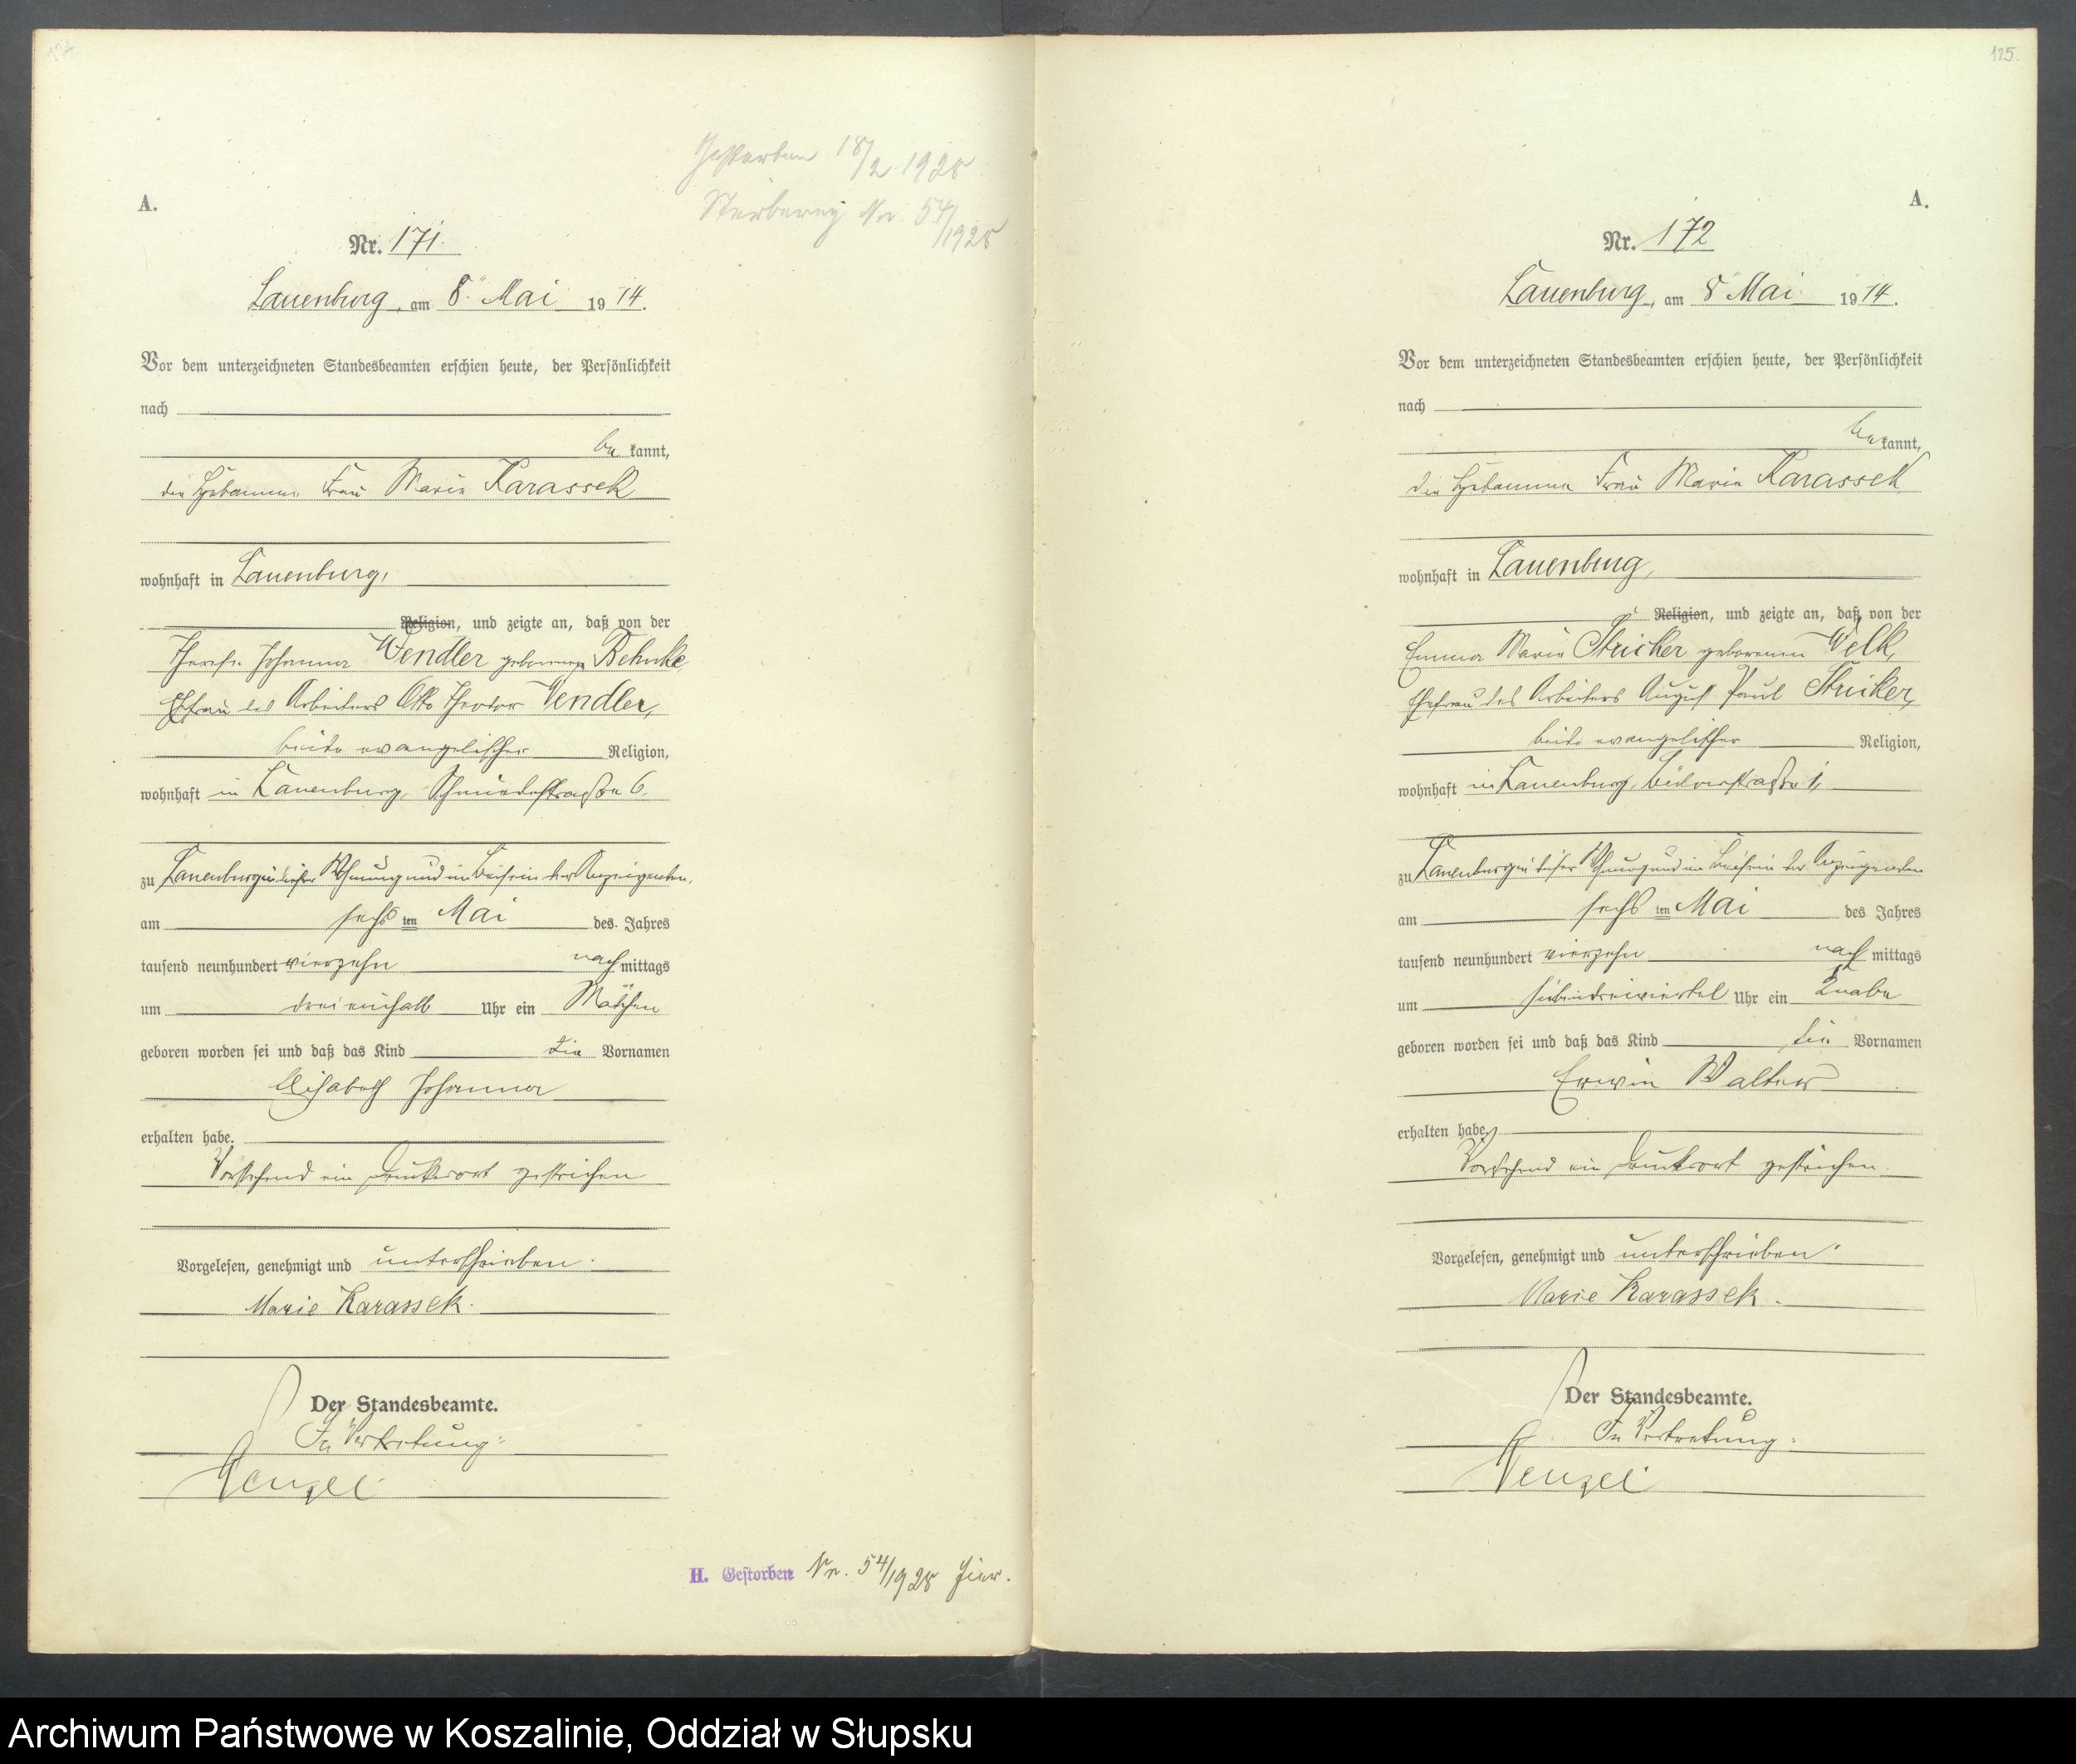 Gestorben 18/2. 1928
Sterbereg Nr. 54/1928
A.
Nr. 171.
Lauenburg, am 8. Mai 1914.
Vor dem unterzeichneten Standesbeamten erschien heute, der Persönlichkeit
nach
be kannt,
die Hebamme Frau Marie Karassek
wohnhaft in Lauenburg,
Religion, und zeigte an, daß von der
Therese Johanna Wendler geborenen Behnke,
Ehefrau des Arbeiters Otto Theodor Wendler,
beide evangelischer Religion,
wohnhaft in Lauenburg, Schmiedestraße 6.
zu Lauenburg in dieser Wohnung und im Beisein der Anzeigenden,
am sechs ten Mai des Jahres
tausend neunhundert vierzehn nach mittags
um drei einhalb Uhr ein Mädchen
geboren worden sei und daß das Kind die Vornamen
Elisabeth Johanna
erhalten habe.
Vorstehend ein Druckwort gestrichen
Vorgelesen, genehmigt und unterschrieben.
Marie Karassek.
Der Standesbeamte.
In Vertretung:
Wenzel
H. Gestorben Nr. 54/1928 hier.
125.
A.
Nr. 172
Lauenburg, am 8 Mai 1914.
Vor dem unterzeichneten Standesbeamten erschien heute, der Persönlichkeit
nach
be kannt,
die Hebamme Frau Marie Karassek
wohnhaft in Lauenburg,
Religion, und zeigte an, daß von der
Emma Marie Stricker geborenen Welk,
Ehefrau des Arbeiters August Paul Stricker,
beide evangelischer Religion,
wohnhaft in Lauenburg, 1,
zu Lauenburg in dieser Wohnung und im Beisein der Anzeigenden
am sechs ten Mai des Jahres
tausend neunhundert vierzehn nach mittags
um siebendreiviertel Uhr ein Knabe
geboren worden sei und daß das Kind die Vornamen
Erwin Walter
erhalten habe.
Vorstehend ein Druckwort gestrichen.
Vorgelesen, genehmigt und unterschrieben.
Marie Karassek.
Der Standesbeamte.
In Vertretung:
Wenzel
Archiwum Państwowe w Koszalinie, Oddział w Słupsku